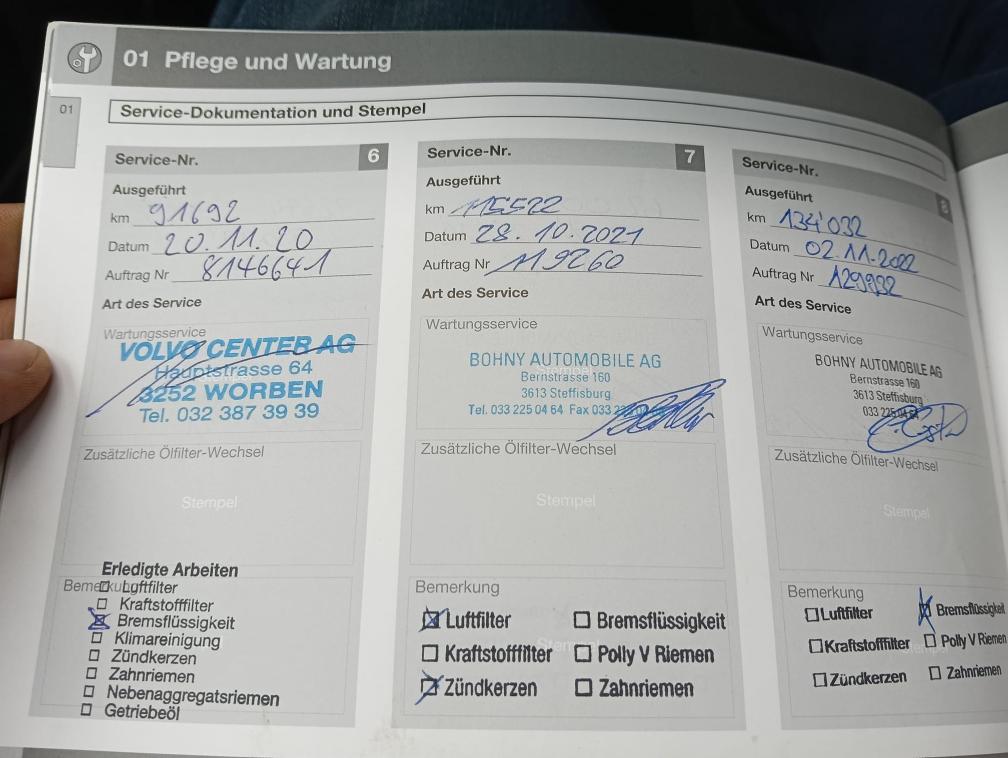 01 Pflege und Wartung
01
Service-Dokumentation und Stempel
Service-Nr. 6
Ausgeführt
km 91692
Datum 20.11.20
Auftrag Nr 8146641
Art des Service
Wartungsservice
VOLVO CENTER AG
Hauptstrasse 64
3252 WORBEN
Tel. 032 387 39 39
Zusätzliche Ölfilter-Wechsel
Stempel
Erledigte Arbeiten
Bemerkung
Luftfilter
Kraftstofffilter
Bremsflüssigkeit
Klimareinigung
Zündkerzen
Zahnriemen
Nebenaggregatsriemen
Getriebeöl
Service-Nr. 7
Ausgeführt
km 115522
Datum 28.10.2021
Auftrag Nr 119260
Art des Service
Wartungsservice
BOHNY AUTOMOBILE AG
Bernstrasse 160
3613 Steffisburg
Tel. 033 225 04 64 Fax 033
Zusätzliche Ölfilter-Wechsel
Stempel
Bemerkung
Luftfilter Bremsflüssigkeit
Kraftstoffffilter Polly V Riemen
Zündkerzen Zahnriemen
Service-Nr. 8
Ausgeführt
km 134'032
Datum 02.11.2022
Auftrag Nr 129932
Art des Service
Wartungsservice
BOHNY AUTOMOBILE AG
Bernstrasse 160
3613 Steffisburg
033 225 04 64
Zusätzliche Ölfilter-Wechsel
Stempel
Bemerkung
Luftfilter Bremsflüssigkeit
Kraftstofffilter Polly V Riemen
Zündkerzen Zahnriemen